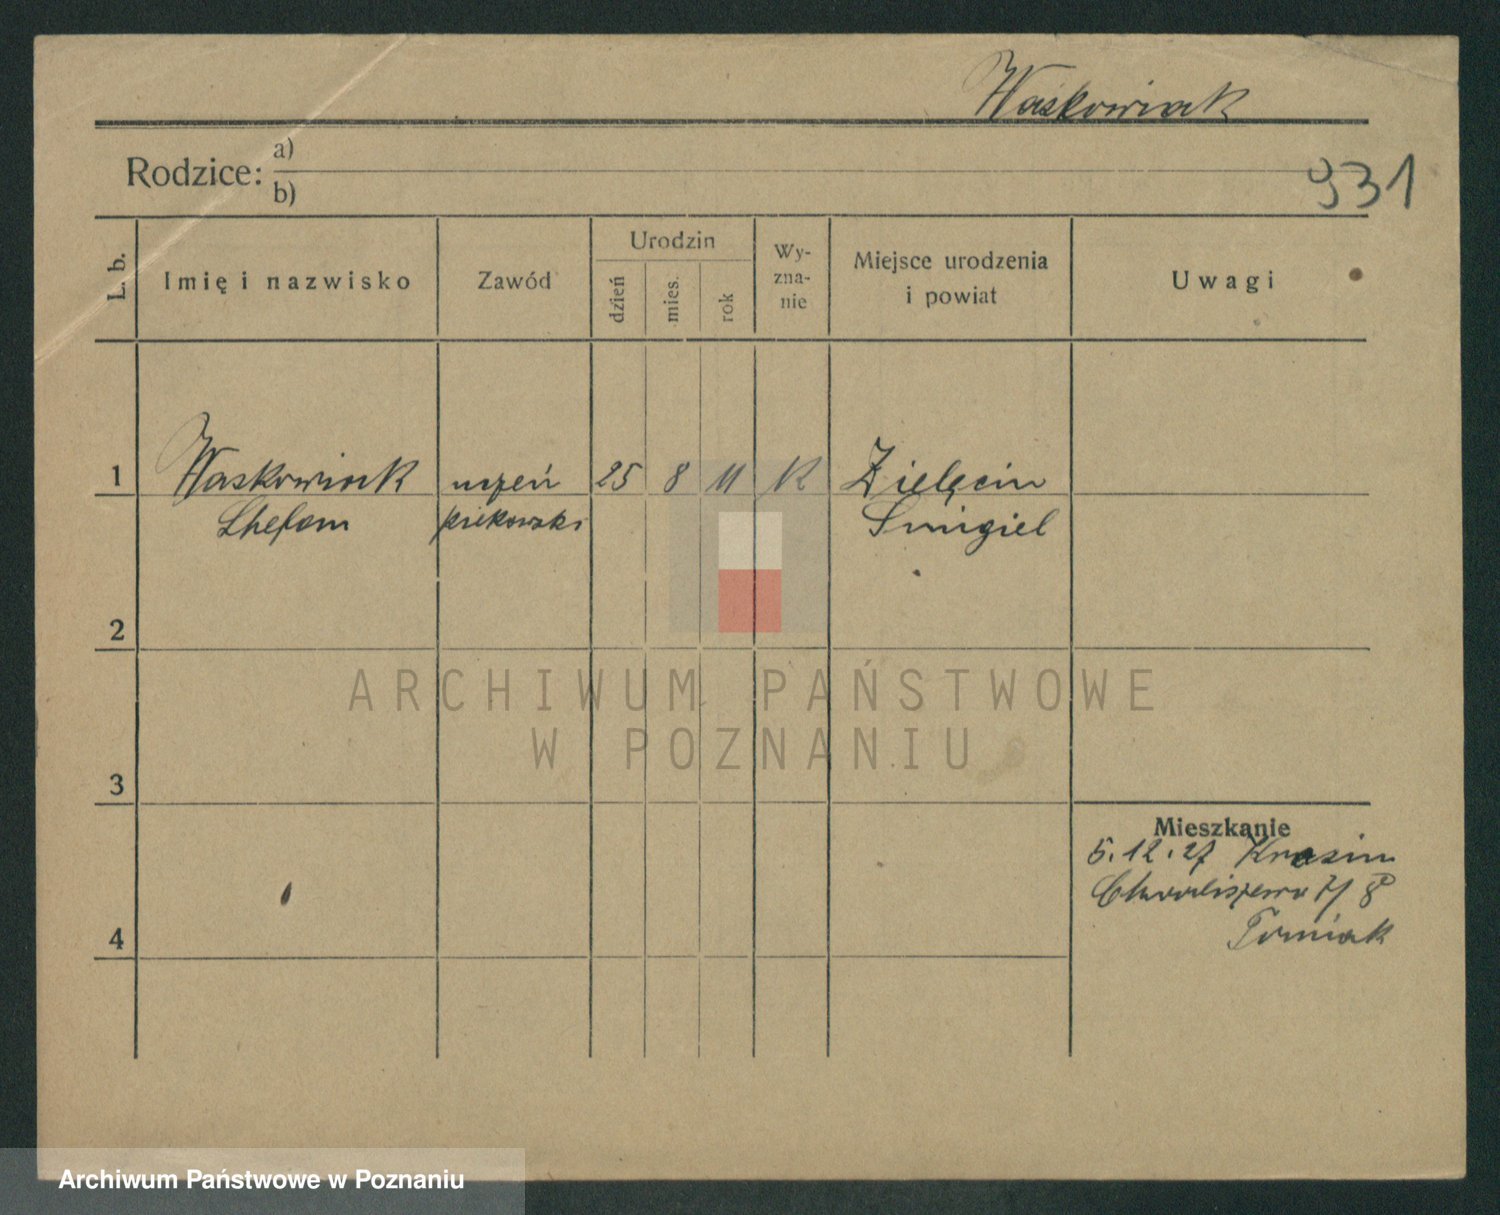 Waskowiak
Rodzice: a)
b)
931
L. b.
Imię i nazwisko
Zawód
Urodzin
dzień
mies.
rok
Wy-
zna-
nie
Miejsce urodzenia
i powiat
Uwagi
1 Waskowiak uczeń 25 8 11 K Zielęcin
piekarski Śmigiel
2
3
4
Mieszkanie
5.12.27
Chwaliszewo
Tomiak
ARCHIWUM PAŃSTWOWE
W POZNANIU
Archiwum Państwowe w Poznaniu